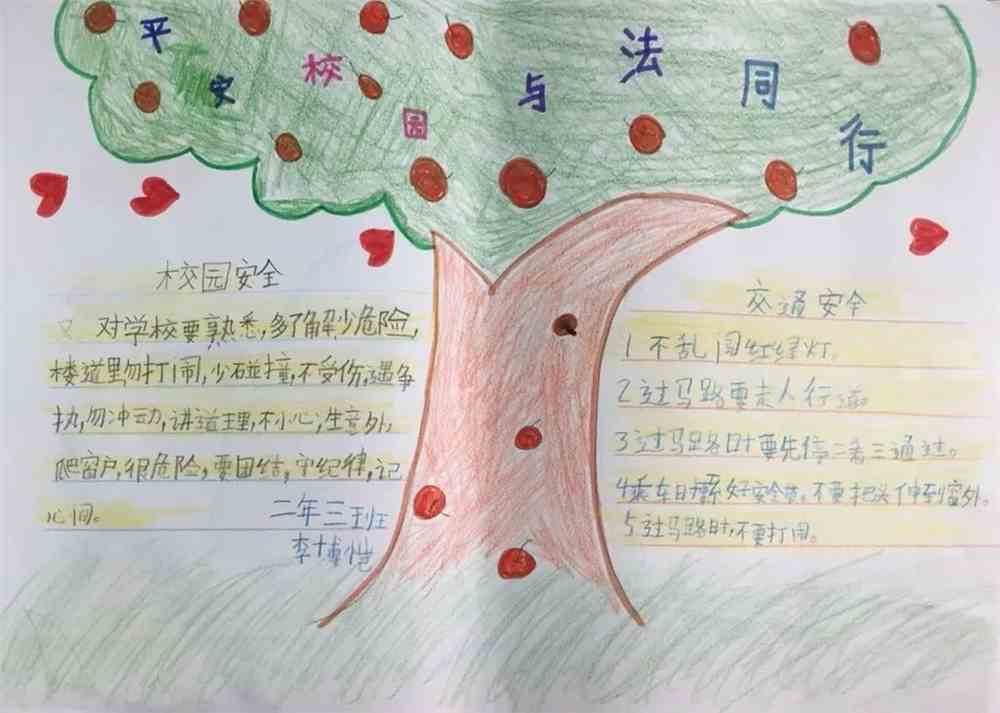 平安校园与法同行
校园安全
对学校要熟悉,多了解少危险,
楼道里勿打闹,少碰撞,不受伤,遇争
执,勿冲动,讲道理,不小心,生意外,
爬窗户,很危险,要团结,守纪律,记
心间。
二年三班
李博恺
交通安全
1不乱闯红绿灯,
2过马路要走人行道
3过马路口要先停二看三通过。
4乘车时系好安全带,不要把头伸到窗外。
5过马路时,不要打闹。